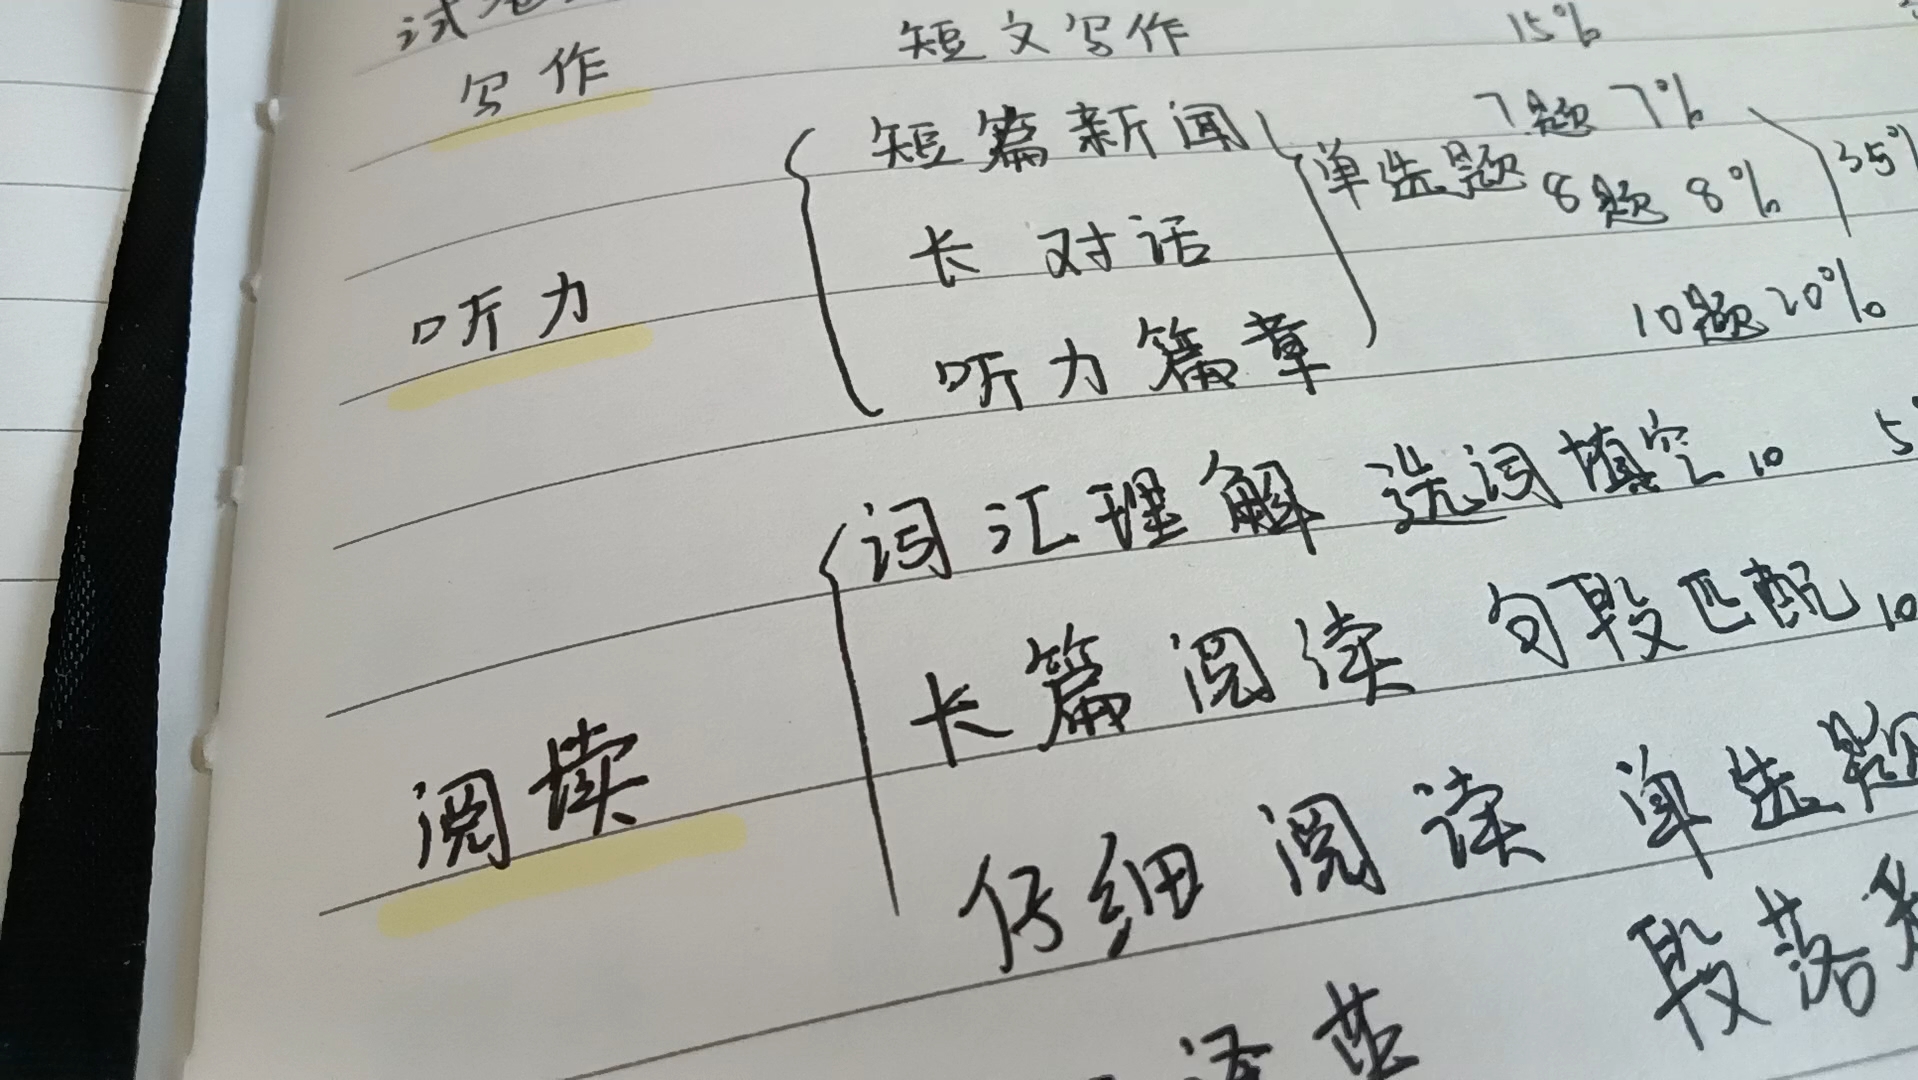 试卷
写作 短文写作 15%
短篇新闻 7题 7%
单选题 35%
长对话 8题 8%
听力
听力篇章 10题 20%
词汇理解 选词填空 10 5
长篇阅读 句段匹配 10
阅读
仔细阅读 单选题
段落